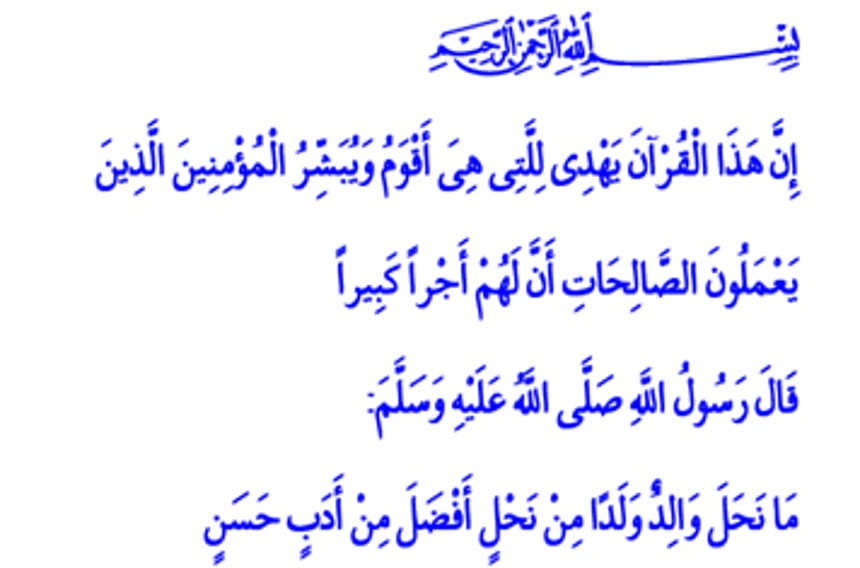 بِسْــــــــمِ اللَّهِ الرَّحْمَنِ الرَّحِيمِ
إِنَّ هَذَا الْقُرْآنَ يَهْدِى لِلَّتِى هِىَ أَقْوَمُ وَيُبَشِّرُ الْمُؤْمِنِينَ الَّذِينَ
يَعْمَلُونَ الصَّالِحَاتِ أَنَّ لَهُمْ أَجْراً كَبِيراً
قَالَ رَسُولُ اللَّهِ صَلَّى اللَّهُ عَلَيْهِ وَسَلَّمَ:
مَا نَحَلَ وَالِدٌ وَلَدًا مِنْ نَحْلٍ أَفْضَلَ مِنْ أَدَبٍ حَسَنٍ